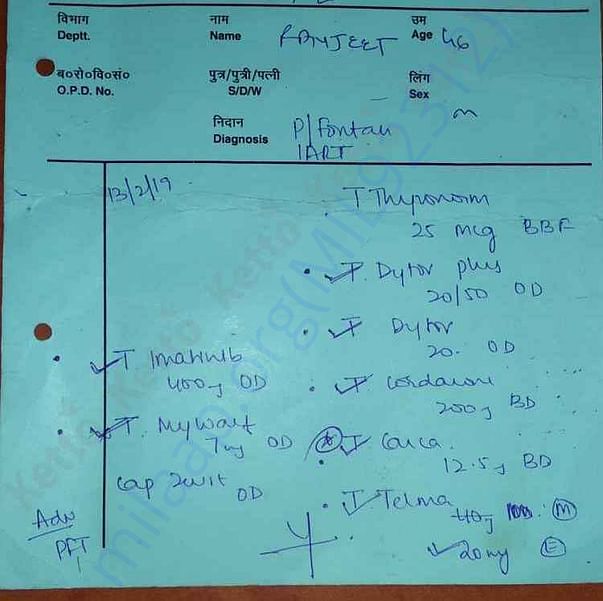 विभाग
Deptt.
नाम
Name RANJEET
उम
Age 46
ब०रो०वि०सं०
O.P.D. No.
पुत्र/पुत्री/पत्नी
S/D/W
लिंग
Sex m
निदान
Diagnosis P/Fontan
IART
13/2/19
T Thyronorm
25 mcg BBF
T. Dytor plus
20/50 OD
T Dytor
20. OD
T Imatinib
400g OD
T Cordarone
200g BD
T. Mywarf
7mg OD
T Carca.
12.5g BD
Cap Zevit
OD
T Telma
40g M
20mg E
Adv
PFT
Ketto Ketto Ketto
milaap.org